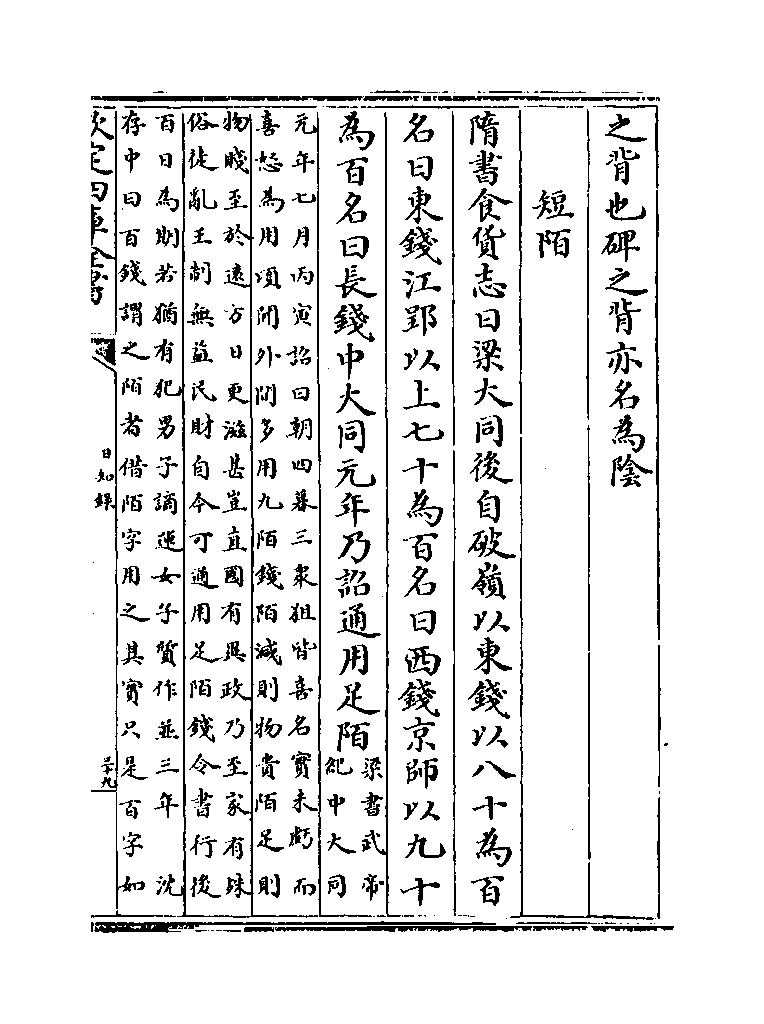 之背也碑之背亦名為陰
短陌
隋書食貨志曰梁大同後自破嶺以東錢以八十為百
名曰東錢江郢以上七十為百名曰西錢京師以九十
為百名曰長錢中大同元年乃詔通用足陌
梁書武帝
紀中大同
元年七月丙寅詔曰朝四暮三衆狙皆喜名實未虧而
喜怒為用頃聞外間多用九陌錢陌減則物貴陌足則
物賤至於遠方日更滋甚豈直國有異政乃至家有殊
俗徒亂王制無益民財自今可通用足陌錢令書行後
百日為期若猶有犯男子謫運女子質作並三年 沈
存中曰百錢謂之陌者借陌字用之其實只是百字如
欽定四庫全書
日知錄
三十九